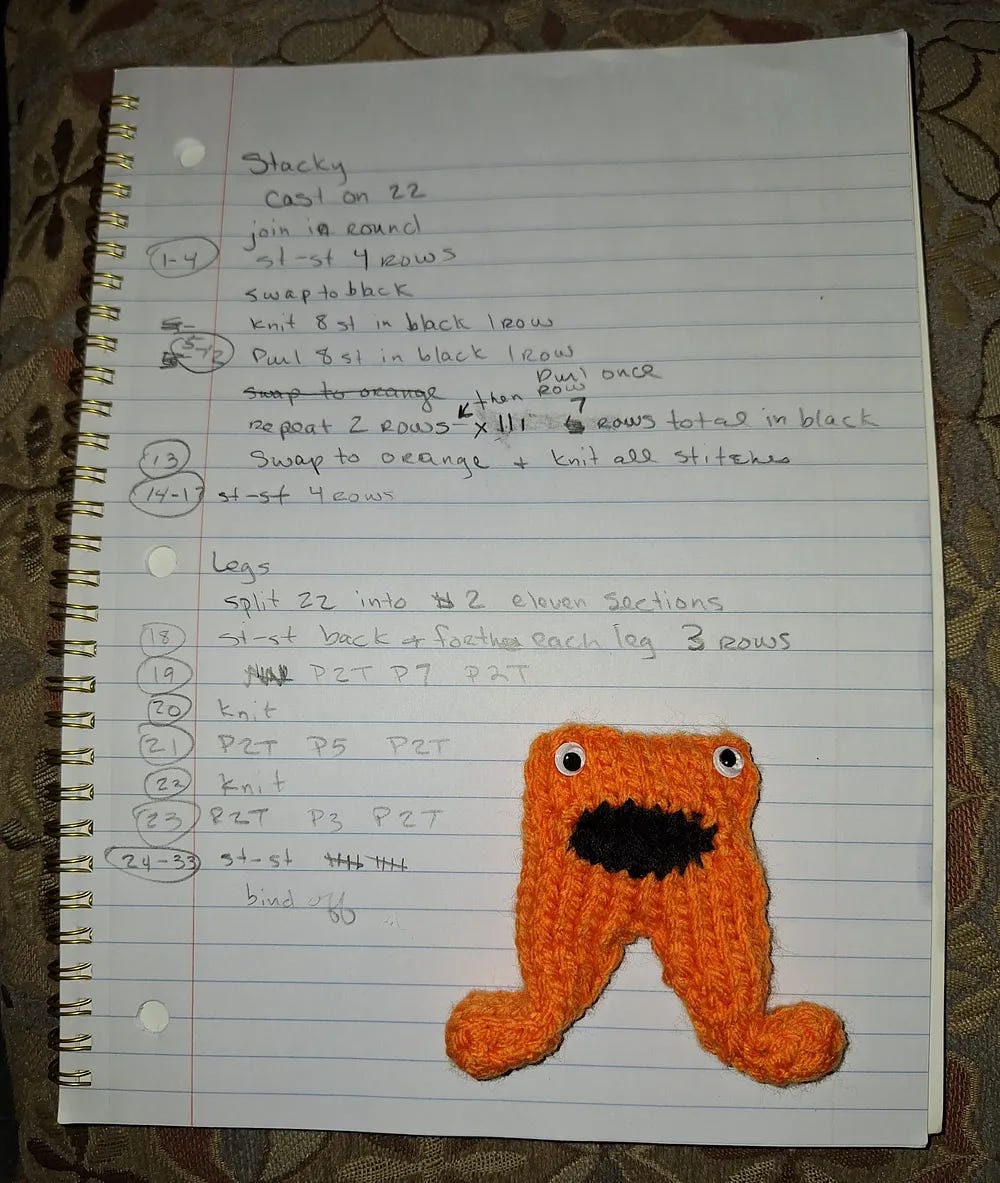 Stacky
cast on 22
join in round
1-4 st-st 4 rows
swap to black
5- knit 8 st in black 1 row
5-12 Purl 8 st in black 1 row
swap to orange then purl once row
repeat 2 rows x 111 7 rows total in black
13 Swap to orange + knit all stitches
14-17 st-st 4 rows
Legs
split 22 into 2 eleven sections
18 st-st back + forth each leg 3 rows
19 P2T P7 P2T
20 knit
21 P2T P5 P2T
22 knit
23 P2T P3 P2T
24-33 st-st
bind off